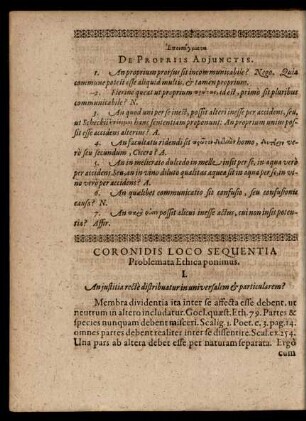 De Propriis Adjunctis.
1. An proprium prorsus sit incommunicabile? Nego. Quia
commune potest esse aliquid multis, & tamen proprium.
2. Fierine queat ut proprium id est, primò sit pluribus
communicabile? N.
3. An quod uni per se inest, possit alteri inesse per accidens, seu,
ut Scheckii hanc sententiam proponunt: An proprium unius pos-
sit esse accidens alterius? A.
4. An facultatu ridendi sit homo,
verò seu secundum, Cicero? A.
5. An in melicrato dulcedo in melle insit per se, in aqua verò
per accidens; Seu, an in vino diluto qualitas aquea sit in aqua per se, in vi-
no verò per accidens? A.
6. An qualibet communicatio sit confusio, seu confusionis
causa? N.
7. An possit alicui inesse actus, cui non insit poten-
tia? Affir.
CORONIDIS LOCO SEQUENTIA
Problemata Ethica ponimus.
I.
An justitia rectè distribuatur in universalem & particularem?
Membra dividentia ita inter se affecta esse debent, ut
neutrum in altero includatur. Gocl. quæst. Eth. 79. Partes &
species nunquam debent misceri. Scalig. 1. Poet. c. 3. pag. 14.
omnes partes debent realiter inter se dissentire. Scal. ex. 254.
Una pars ab altera debet esse per naturam separata. Ergò
cum